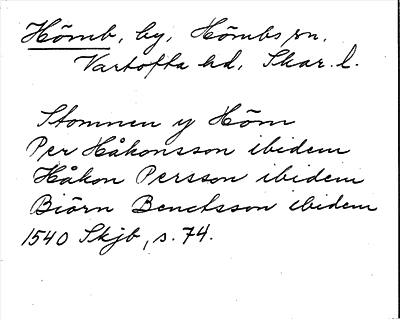 Hömb, by, Hömbs sn.
Vartofta hd, Skar. l.
Stommen y Höm
Per Håkonsson ibidem
Håkon Persson ibidem
Biörn Benctsson ibidem
1540 Skjb, s. 74.